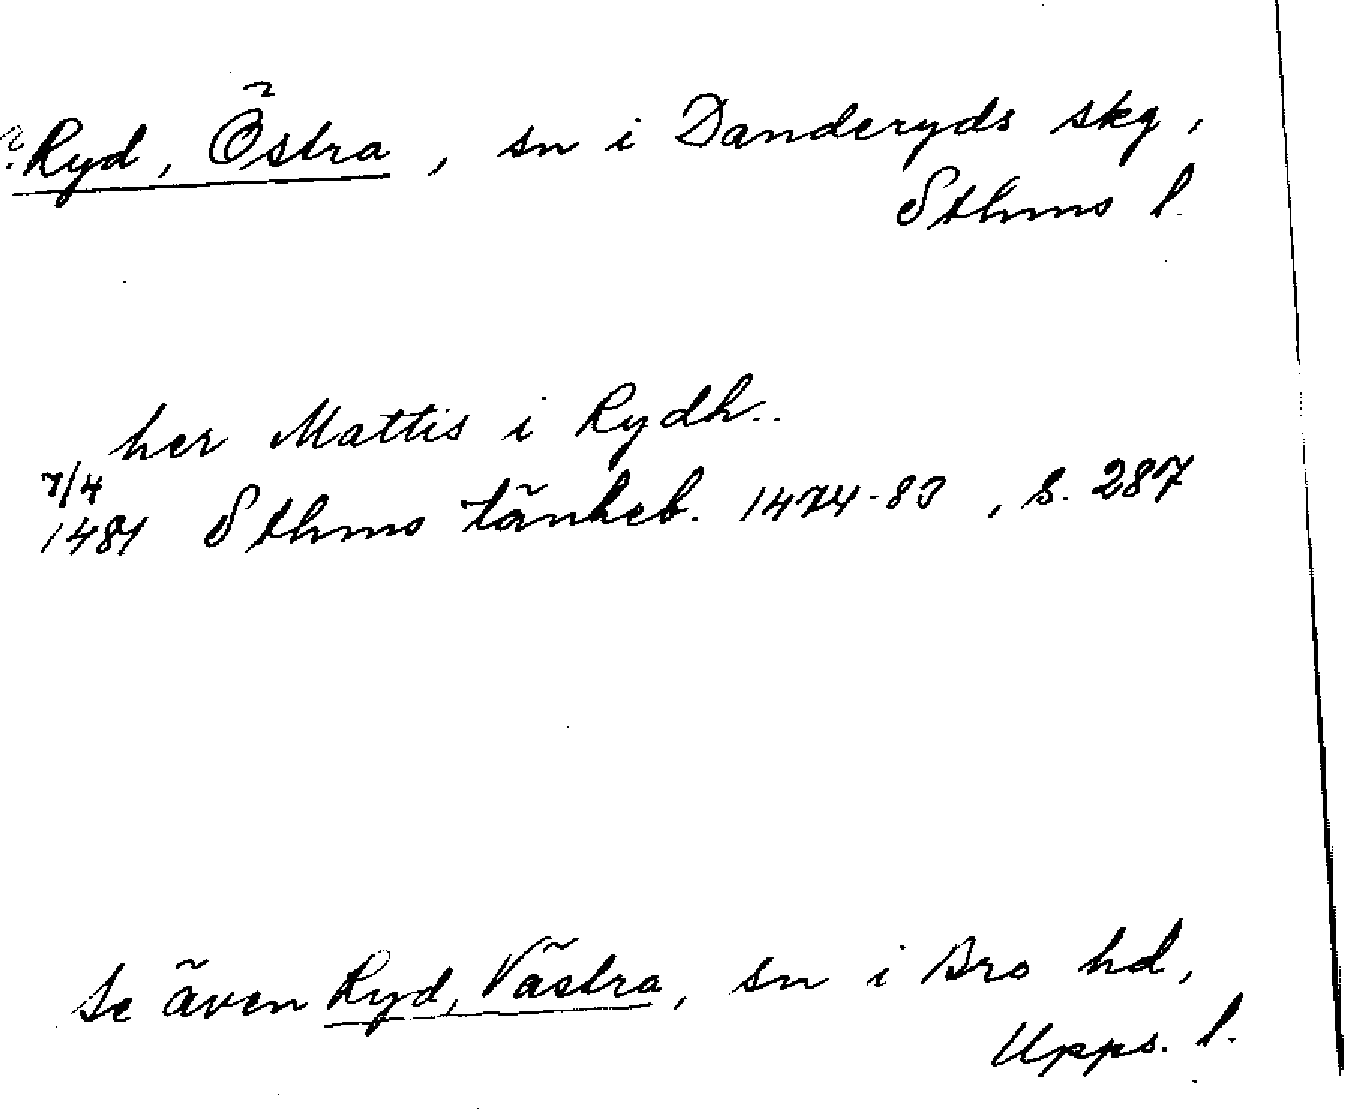 ? Ryd, Östra, sn i Danderyds skg,
Sthms l.
her Mattis i Rydh..
7/4
1481 Sthms tänkeb. 1474-83, s. 287
Se även Ryd, Västra, sn i Bro hd,
Upps. l.